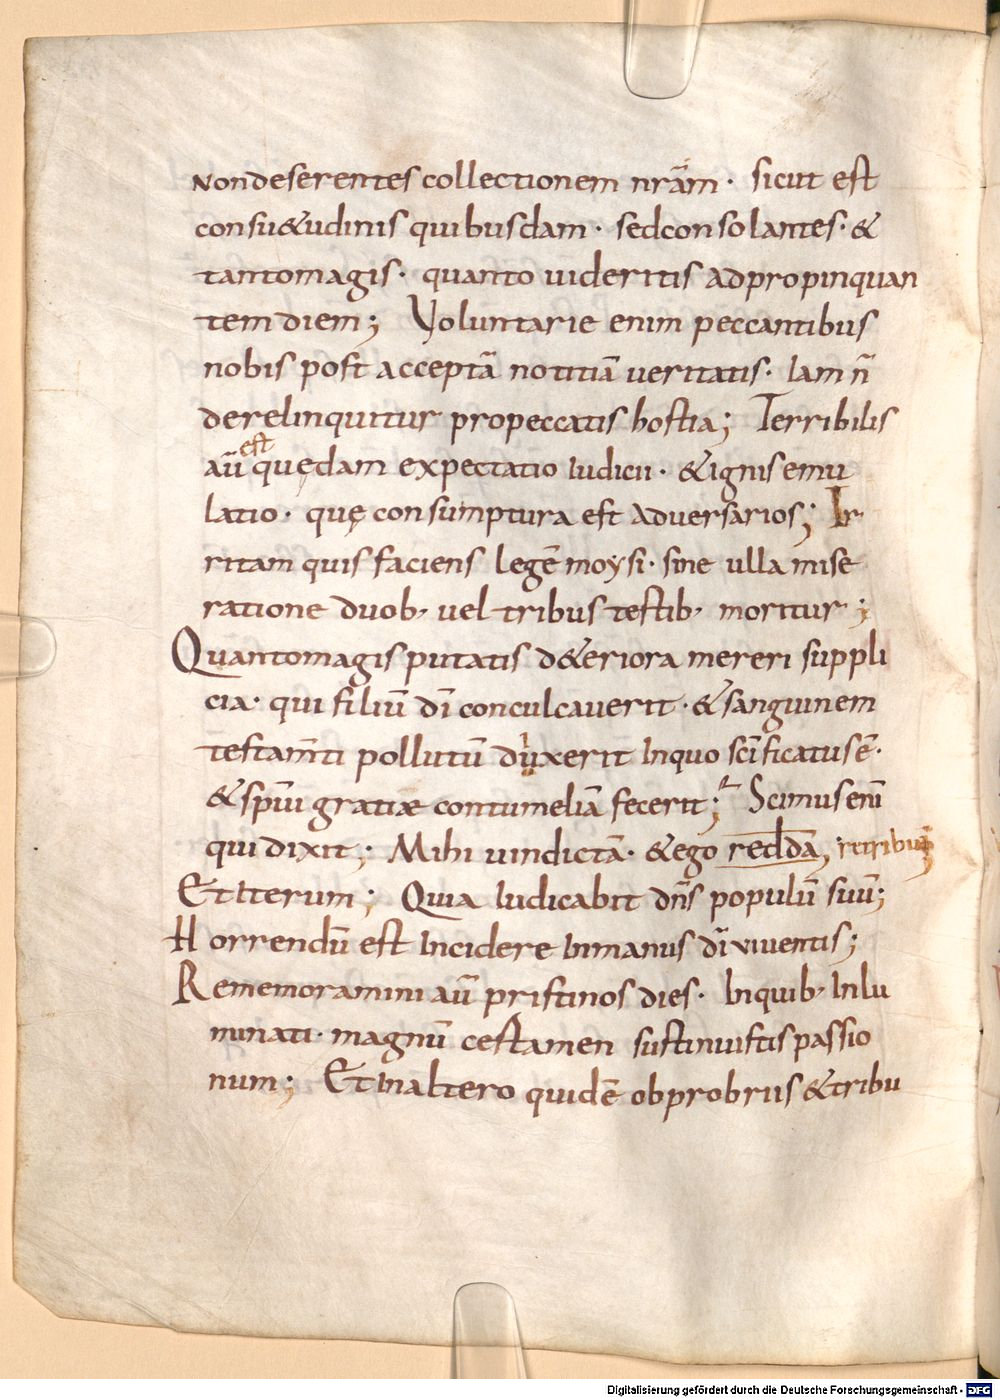 Non deserentes collectionem nrãm · sicut est
consu&udinis quibusdam · sed consolantes · &
tantomagis · quanto uideritis adpropinquan
tem diem ; Voluntarie enim peccantibus
nobis post acceptã notitiã ueritatis · Iam ñ
derelinquitur pro peccatis hostia ; Terribilis
est
aũ quędam expectatio iudicii · & ignis emu
latio · quę consumptura est aduersarios ; Ir
ritam quis faciens legẽ moysi · sine ulla mise
ratione duob, uel tribus testib, moritur ;
Quantomagis putatis d&eriora mereri suppli
cia · qui filiũ dī conculcauerit · & sanguinem
testam̃ti pollutũ duxerit In quo scīficatus ẽ ·
& spīui gratiæ contumeliã fecerit ; Scimus enī
qui dixit ; Mihi uindictã · & ego reddã, retribuã
Et Iterum ; Quia Iudicabit dñs populũ suũ ;
Horrendũ est Incidere In manus dī uiuentis ;
Rememoramini aũ pristinos dies · In quib, Inlu
minati · magnũ certamen sustinuistis passio
num ; Et In altero quidẽ obprobriis & tribu
Digitalisierung gefördert durch die Deutsche Forschungsgemeinschaft - DFG